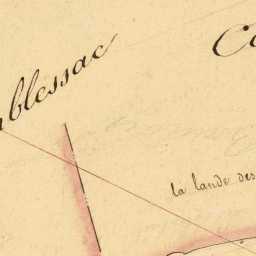 blessac
la lande des